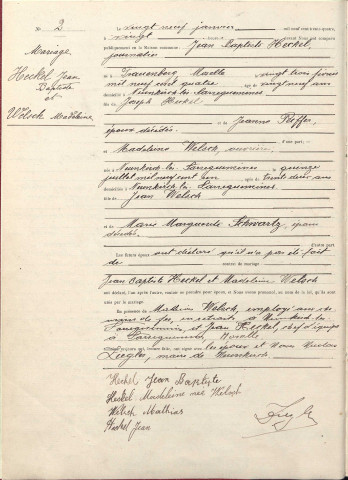 N° 2
Mariage
Heckel Jean
Baptiste
et
Welsch Madeleine
Le vingt neuf janvier mil neuf cent trente-quatre,
à vingt heures
publiquement en la Maison commune: Jean Baptiste Heckel,
journalier
né à Moselle vingt trois février
mil neuf cent quatre vingt neuf ans
domicilié à Neunkirch-les-Sarreguemines
fils de Joseph Heckel
et de Jeanne
époux décédés. D'une part; —
et Madeleine Welsch, ouvrière
née à Neunkirch-les Sarreguemines quinze
juillet mil neuf cent un trente deux ans
domiciliée à Neunkirch-les Sarreguemines
fille de Jean Welsch
et de Marie Marguerite Schwartz, époux
décédés. D'autre part
Les futurs époux ont déclaré qu'il n'a pas été fait
de contrat de mariage
Jean Baptiste Heckel et Madeleine Welsch
ont déclaré, l'un après l'autre, vouloir se prendre pour époux, et Nous avons prononcé, au nom de la loi, qu'ils sont
unis par le mariage.
En présence de Mathias Welsch, employé aux che-
mins de fer, en retraite à Neunkirch-les
Sarreguemines, et Jean Heckel, chef d'équipe
à Sarreguemines, Moselle
lecture faite, ont signé avec les époux et Nous Nicolas
Ziegler, maire de Neunkirch.
Heckel Jean Baptiste
Heckel Madeleine née Welsch
Welsch Mathias
Heckel Jean
Ziegler